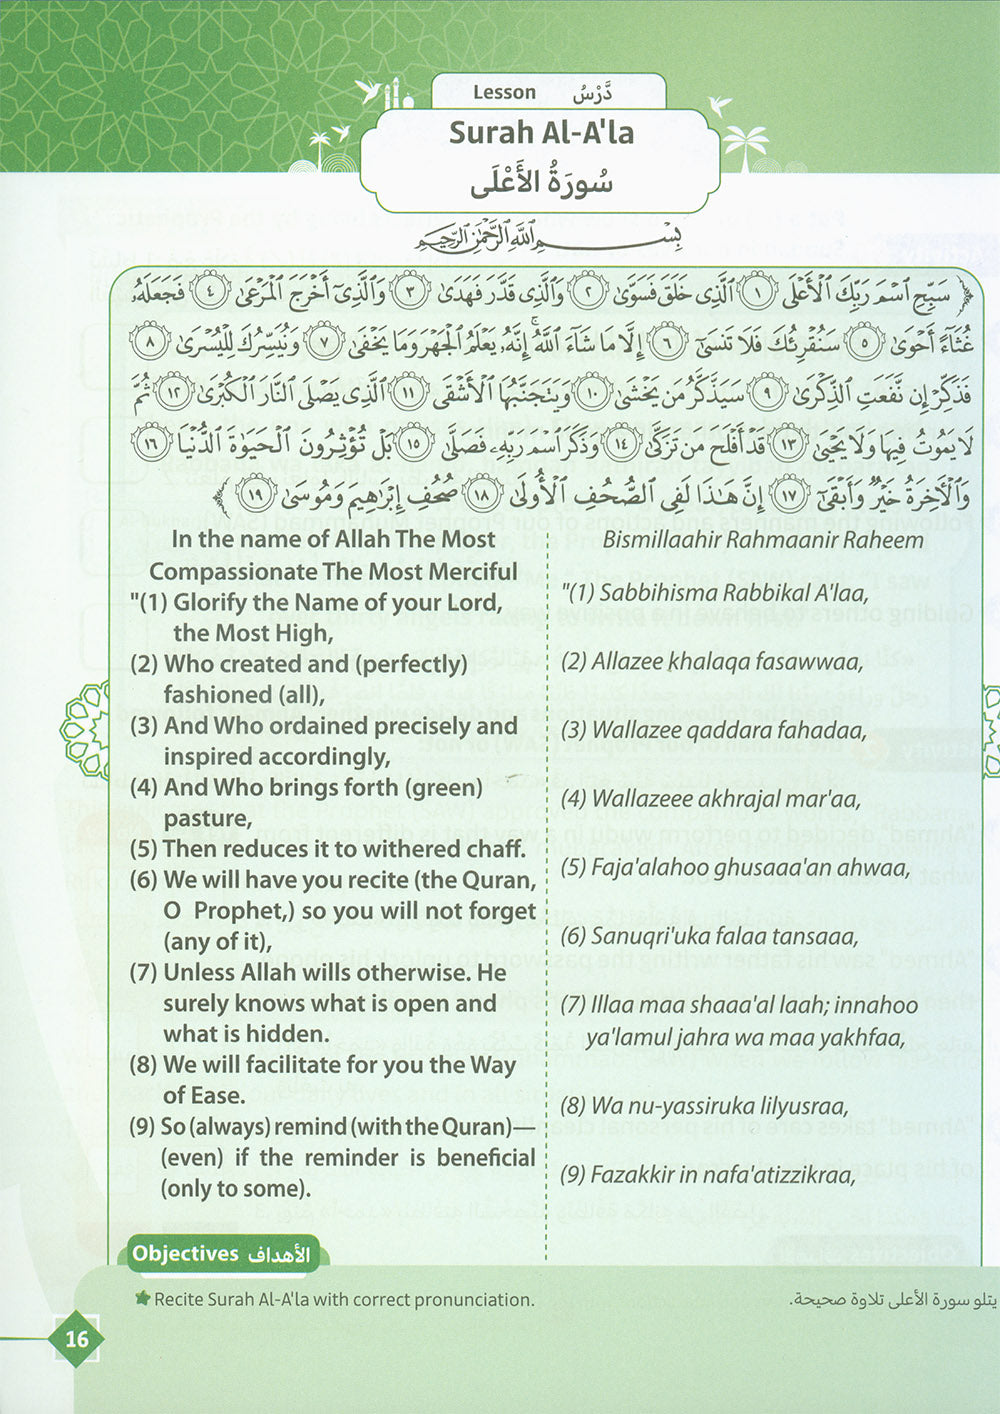 Lesson دَرْسُ
Surah Al-A'la
سُورَةُ الأَعْلَى
بِسْمِ اللَّهِ الرَّحْمَٰنِ الرَّحِيمِ
سَبِّحِ ٱسْمَ رَبِّكَ ٱلْأَعْلَى ١ ٱلَّذِى خَلَقَ فَسَوَّىٰ ٢ وَٱلَّذِى قَدَّرَ فَهَدَىٰ ٣ وَٱلَّذِىٓ أَخْرَجَ ٱلْمَرْعَىٰ ٤ فَجَعَلَهُۥ
غُثَآءً أَحْوَىٰ ٥ سَنُقْرِئُكَ فَلَا تَنسَىٰٓ ٦ إِلَّا مَا شَآءَ ٱللَّهُ ۚ إِنَّهُۥ يَعْلَمُ ٱلْجَهْرَ وَمَا يَخْفَىٰ ٧ وَنُيَسِّرُكَ لِلْيُسْرَىٰ ٨
فَذَكِّرْ إِن نَّفَعَتِ ٱلذِّكْرَىٰ ٩ سَيَذَّكَّرُ مَن يَخْشَىٰ ١٠ وَيَتَجَنَّبُهَا ٱلْأَشْقَى ١١ ٱلَّذِى يَصْلَى ٱلنَّارَ ٱلْكُبْرَىٰ ١٢ ثُمَّ
لَا يَمُوتُ فِيهَا وَلَا يَحْيَىٰ ١٣ قَدْ أَفْلَحَ مَن تَزَكَّىٰ ١٤ وَذَكَرَ ٱسْمَ رَبِّهِۦ فَصَلَّىٰ ١٥ بَلْ تُؤْثِرُونَ ٱلْحَيَوٰةَ ٱلدُّنْيَا ١٦
وَٱلْـَٔاخِرَةُ خَيْرٌ وَأَبْقَىٰٓ ١٧ إِنَّ هَـٰذَا لَفِى ٱلصُّحُفِ ٱلْأُولَىٰ ١٨ صُحُفِ إِبْرَٰهِيمَ وَمُوسَىٰ ١٩
In the name of Allah The Most
Compassionate The Most Merciful
"(1) Glorify the Name of your Lord,
the Most High,
(2) Who created and (perfectly)
fashioned (all),
(3) And Who ordained precisely and
inspired accordingly,
(4) And Who brings forth (green)
pasture,
(5) Then reduces it to withered chaff.
(6) We will have you recite (the Quran,
O Prophet,) so you will not forget
(any of it),
(7) Unless Allah wills otherwise. He
surely knows what is open and
what is hidden.
(8) We will facilitate for you the Way
of Ease.
(9) So (always) remind (with the Quran)—
(even) if the reminder is beneficial
(only to some).
Bismillaahir Rahmaanir Raheem
"(1) Sabbihisma Rabbikal A'laa,
(2) Allazee khalaqa fasawwaa,
(3) Wallazee qaddara fahadaa,
(4) Wallazeee akhrajal mar'aa,
(5) Faja'alahoo ghusaaa'an ahwaa,
(6) Sanuqri'uka falaa tansaaa,
(7) Illaa maa shaaa'al laah; innahoo
ya'lamul jahra wa maa yakhfaa,
(8) Wa nu-yassiruka lilyusraa,
(9) Fazakkir in nafa'atizzikraa,
Objectives الأهداف
Recite Surah Al-A'la with correct pronunciation.
يتلو سورة الأعلى تلاوة صحيحة.
16